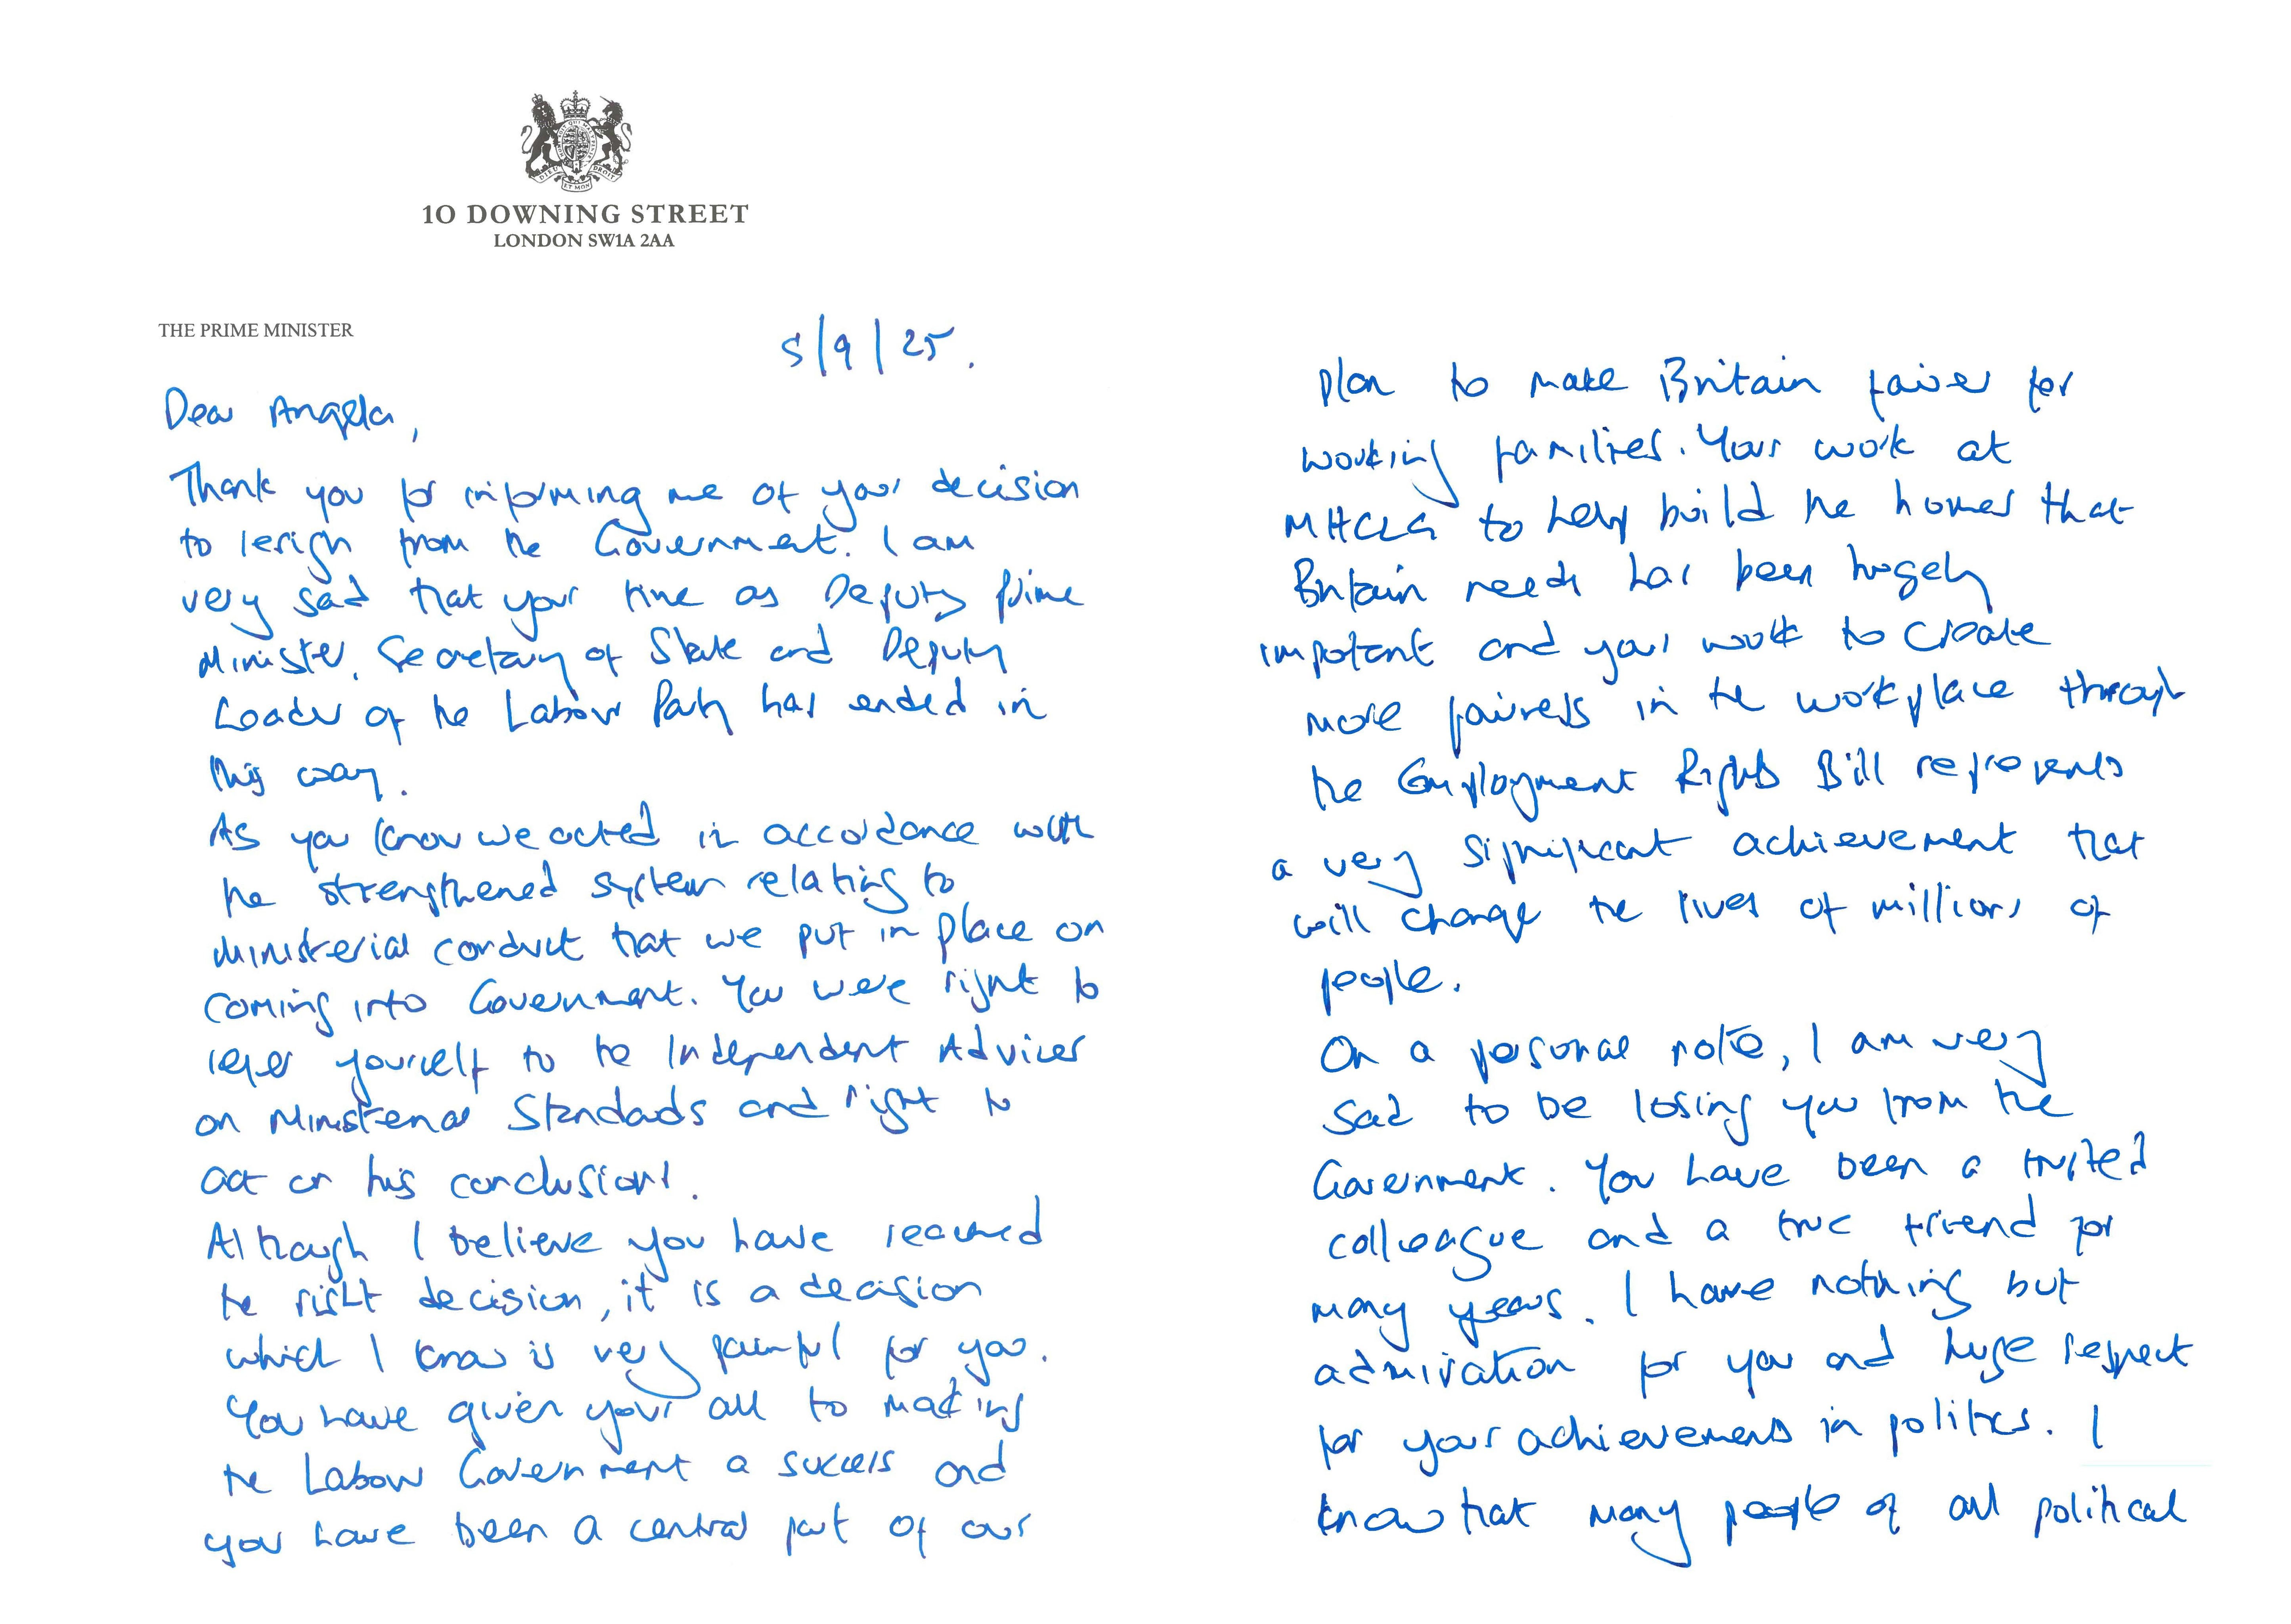 10 DOWNING STREET
LONDON SW1A 2AA
THE PRIME MINISTER
5/9/25.
Dear Angela,
Thank you for informing me of your decision
to resign from the Government. I am
very sad that your time as Deputy Prime
Minister, Secretary of State and Deputy
Leader of the Labour Party has ended in
this way.
As you know we acted in accordance with
the strengthened system relating to
ministerial conduct that we put in place on
coming into Government. You were right to
refer yourself to the Independent Adviser
on Ministerial Standards and right to
act on his conclusions.
Although I believe you have reached
the right decision, it is a decision
which I know is very painful for you.
You have given your all to making
the Labour Government a success and
you have been a central part of our
plan to make Britain fairer for
working families. Your work at
MHCLG to help build the homes that
Britain needs has been hugely
important and your work to create
more fairness in the workplace through
the Employment Rights Bill represents
a very significant achievement that
will change the lives of millions of
people.
On a personal note, I am very
sad to be losing you from the
Government. You have been a trusted
colleague and a true friend for
many years. I have nothing but
admiration for you and huge respect
for your achievements in politics. I
know that many people of all political